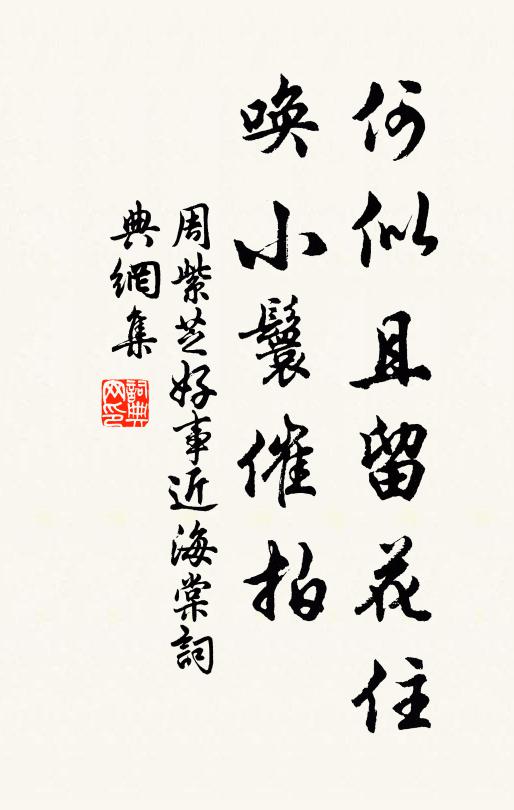 何似且留花住
喚小鬟催拍
周紫芝好事近海棠詞
典網集
詞典網印